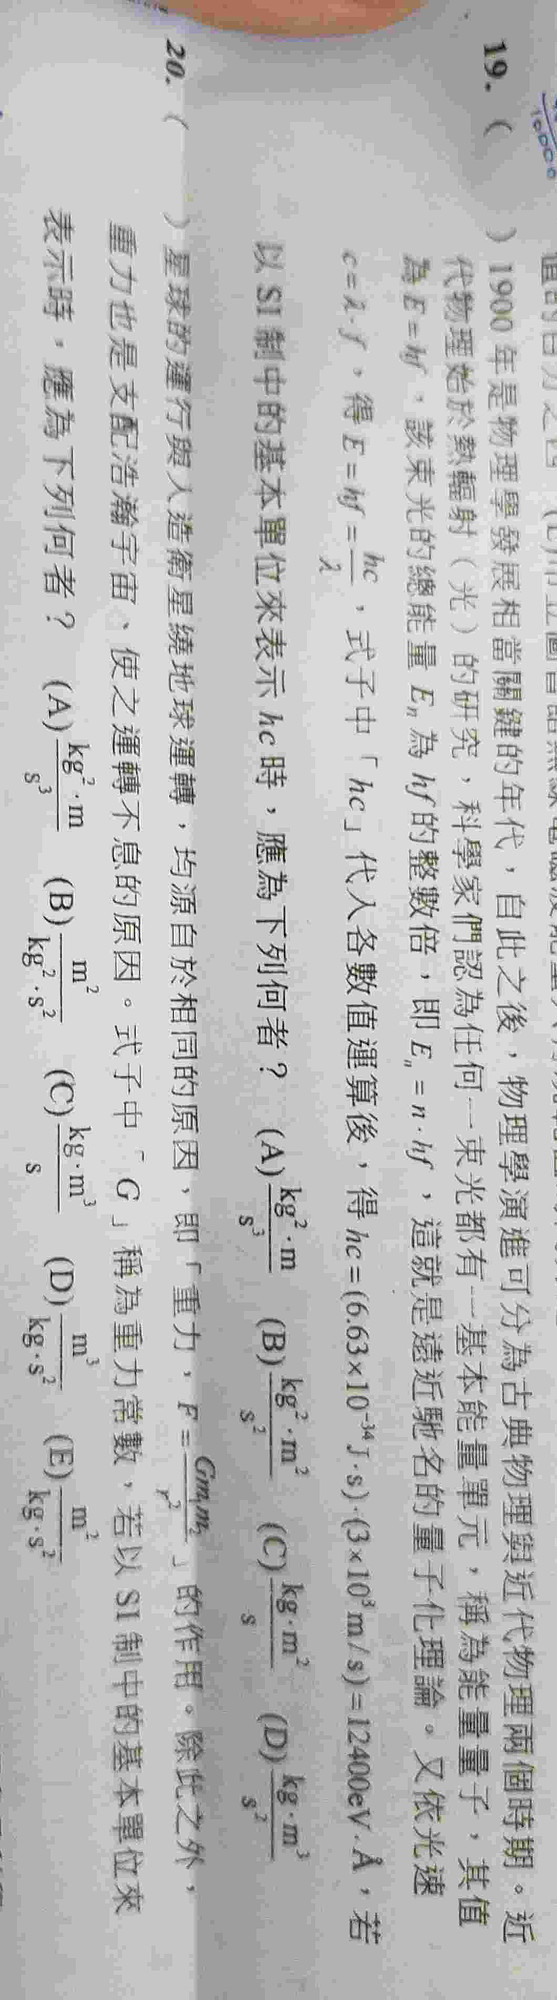 10000
19. (　) 1900 年是物理學發展相當關鍵的年代，自此之後，物理學演進可分為古典物理與近代物理兩個時期。近
代物理始於熱輻射（光）的研究，科學家們認為任何一束光都有一基本能量單元，稱為能量量子，其值
為 E = hf，該束光的總能量 Eₙ 為 hf 的整數倍，即 Eₙ = n · hf，這就是遠近馳名的量子化理論。又依光速
c = λ · f，得 E = hf = hc/λ，式子中「hc」代入各數值運算後，得 hc = (6.63×10⁻³⁴ J · s) · (3×10⁸ m/s) = 12400eV · Å，若
以 SI 制中的基本單位來表示 hc 時，應為下列何者？ (A) kg² · m/s³ (B) kg² · m²/s² (C) kg · m²/s (D) kg · m³/s²
20. (　) 星球的運行與人造衛星繞地球運轉，均源自於相同的原因，即「重力，F = Gm₁m₂/r²」的作用。除此之外，
重力也是支配浩瀚宇宙、使之運轉不息的原因。式子中「G」稱為重力常數，若以 SI 制中的基本單位來
表示時，應為下列何者？ (A) kg² · m/s³ (B) m²/kg² · s² (C) kg · m³/s (D) m³/kg · s² (E) m²/kg · s²